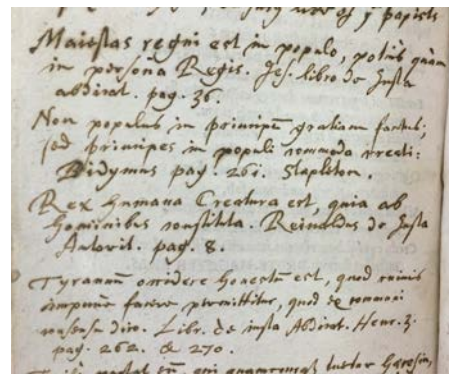 of yͤ papists
Maiestas regni est in populo, potius quàm
in persona Regis. Jes. libro de Justa
abdicat. pag. 36.
Non populus in principũ gratiam factus,
sed principes in populi commoda creati:
Didymus pag. 261. Stapleton.
Rex humana Creatura est, quia ab
hominibus constituta. Reinaldus de Justa
Autorit. pag. 8.
Tyrannũ occidere honestũ est, quod cuivis
impune facere permittitur, quod ex communi
consensu dico. Libr. de iusta Abdicat. Henr. 3.
pag. 262. & 270.